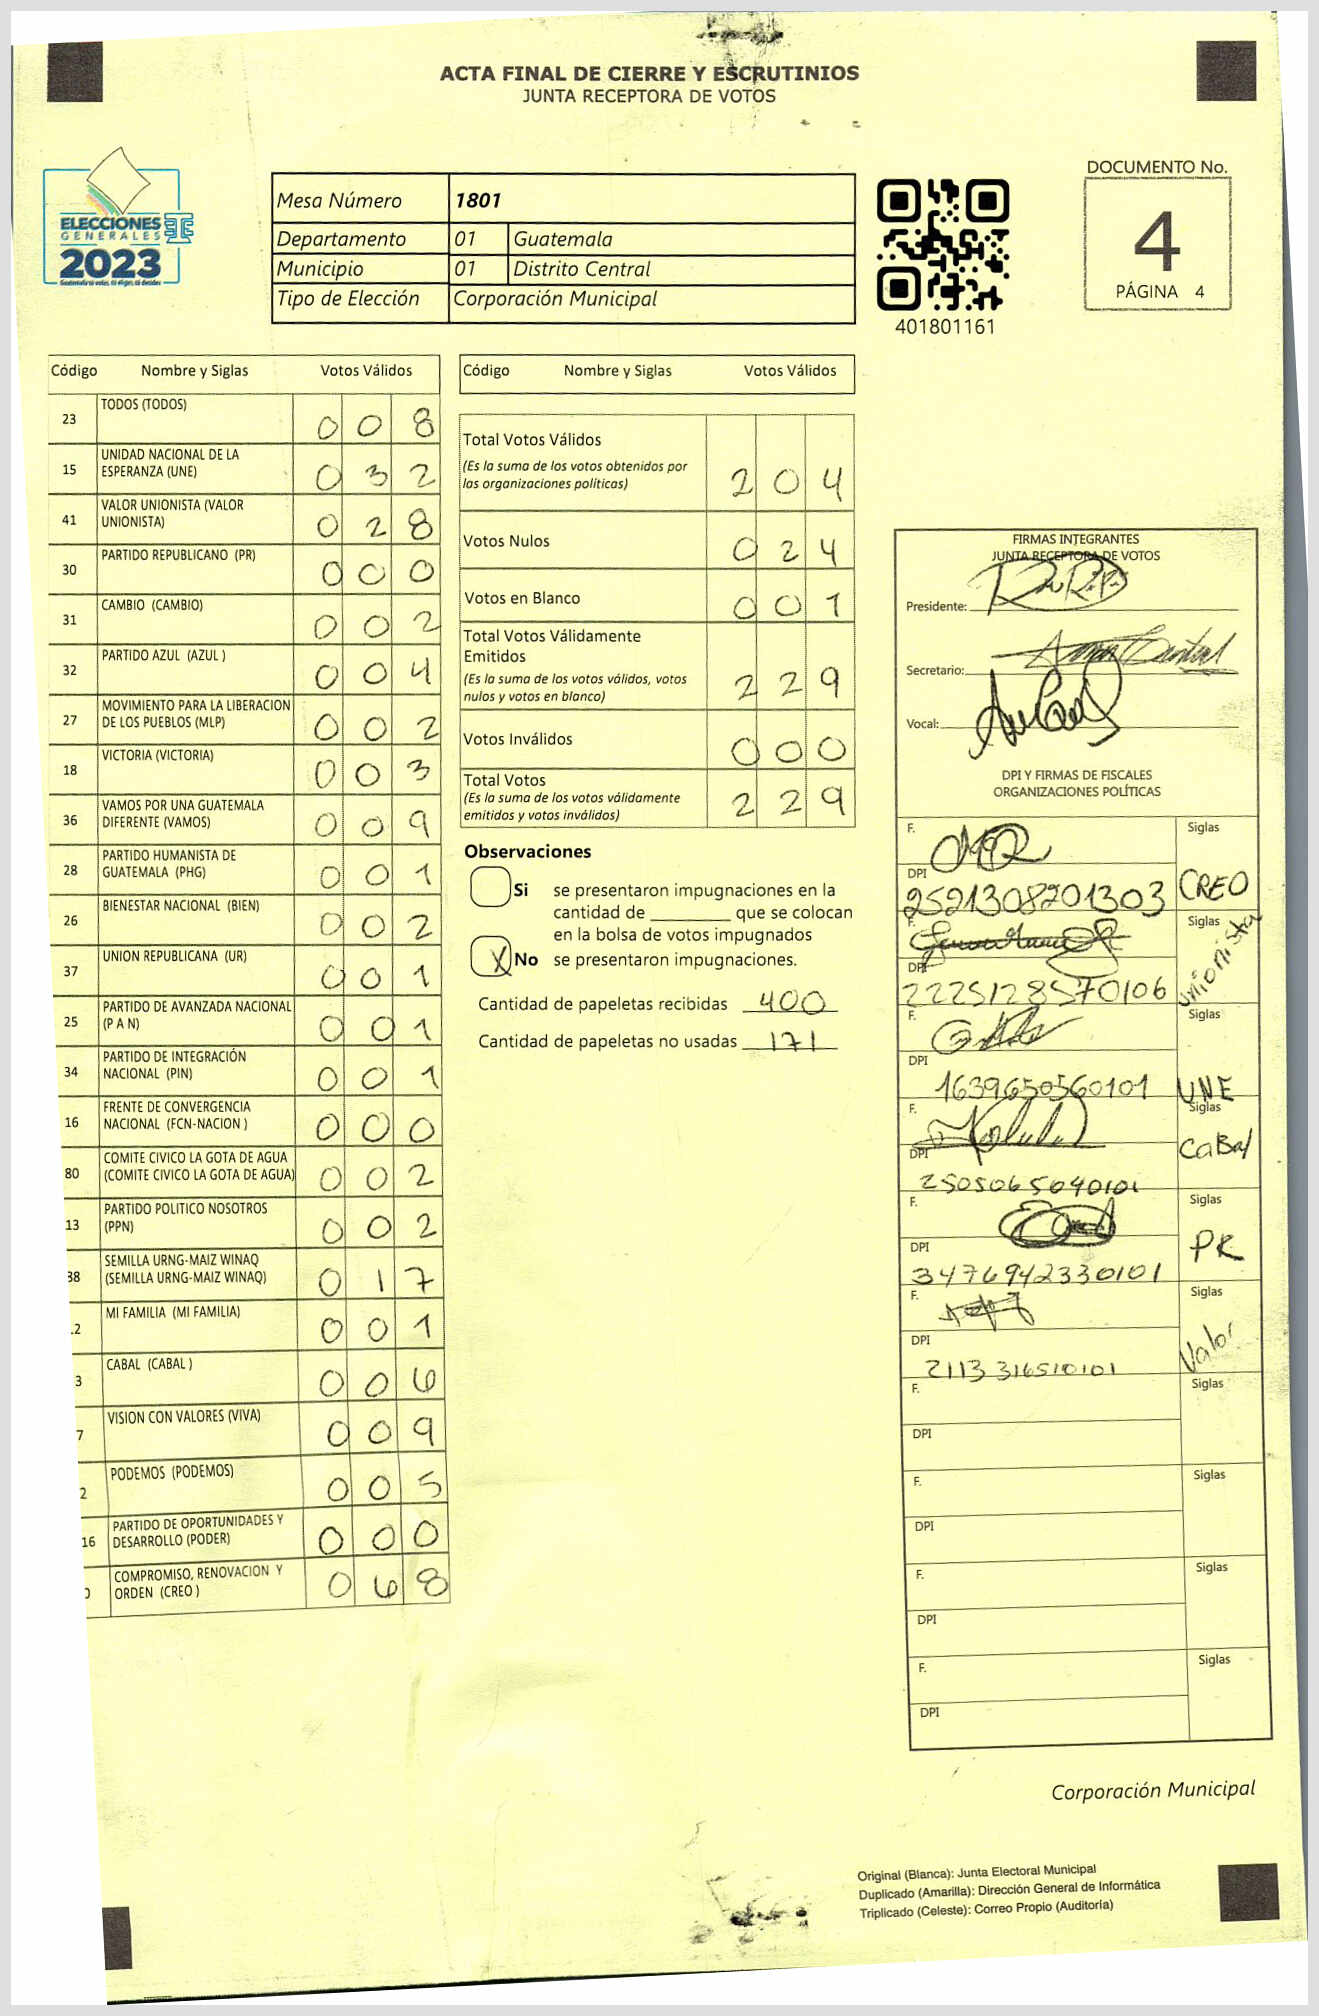 ACTA FINAL DE CIERRE Y ESCRUTINIOS
JUNTA RECEPTORA DE VOTOS
ELECCIONES
GENERALES
2023
Mesa Número 1801
Departamento 01 Guatemala
Municipio 01 Distrito Central
Tipo de Elección Corporación Municipal
401801161
DOCUMENTO No.
4
PÁGINA 4
Código Nombre y Siglas Votos Válidos
23 TODOS (TODOS) 0 0 8
15 UNIDAD NACIONAL DE LA
ESPERANZA (UNE) 0 3 2
41 VALOR UNIONISTA (VALOR
UNIONISTA) 0 2 8
30 PARTIDO REPUBLICANO (PR) 0 0 0
31 CAMBIO (CAMBIO) 0 0 2
32 PARTIDO AZUL (AZUL ) 0 0 4
27 MOVIMIENTO PARA LA LIBERACION
DE LOS PUEBLOS (MLP) 0 0 2
18 VICTORIA (VICTORIA) 0 0 3
36 VAMOS POR UNA GUATEMALA
DIFERENTE (VAMOS) 0 0 9
28 PARTIDO HUMANISTA DE
GUATEMALA (PHG) 0 0 1
26 BIENESTAR NACIONAL (BIEN) 0 0 2
37 UNION REPUBLICANA (UR) 0 0 1
25 PARTIDO DE AVANZADA NACIONAL
(P A N) 0 0 1
34 PARTIDO DE INTEGRACIÓN
NACIONAL (PIN) 0 0 1
16 FRENTE DE CONVERGENCIA
NACIONAL (FCN-NACION ) 0 0 0
80 COMITE CIVICO LA GOTA DE AGUA
(COMITE CIVICO LA GOTA DE AGUA) 0 0 2
13 PARTIDO POLITICO NOSOTROS
(PPN) 0 0 2
38 SEMILLA URNG-MAIZ WINAQ
(SEMILLA URNG-MAIZ WINAQ) 0 1 7
2 MI FAMILIA (MI FAMILIA) 0 0 1
3 CABAL (CABAL ) 0 0 6
7 VISION CON VALORES (VIVA) 0 0 9
2 PODEMOS (PODEMOS) 0 0 5
16 PARTIDO DE OPORTUNIDADES Y
DESARROLLO (PODER) 0 0 0
COMPROMISO, RENOVACION Y
ORDEN (CREO ) 0 6 8
Código Nombre y Siglas Votos Válidos
Total Votos Válidos
(Es la suma de los votos obtenidos por
las organizaciones políticas) 2 0 4
Votos Nulos 0 2 4
Votos en Blanco 0 0 1
Total Votos Válidamente
Emitidos
(Es la suma de los votos válidos, votos
nulos y votos en blanco) 2 2 9
Votos Inválidos 0 0 0
Total Votos
(Es la suma de los votos válidamente
emitidos y votos inválidos) 2 2 9
Observaciones
Si se presentaron impugnaciones en la
cantidad de ________ que se colocan
en la bolsa de votos impugnados
X No se presentaron impugnaciones.
Cantidad de papeletas recibidas 400
Cantidad de papeletas no usadas 171
FIRMAS INTEGRANTES
JUNTA RECEPTORA DE VOTOS
Presidente:
Secretario:
Vocal:
DPI Y FIRMAS DE FISCALES
ORGANIZACIONES POLÍTICAS
F. Siglas
DPI CREO
2521308701303
F. Siglas
DPI Unionista
2225128570106
F. Siglas
DPI
1639650560101 UNE
F. Siglas
DPI CaBal
2505065040101
F. Siglas
DPI PR
3476942330101
F. Siglas
DPI Valor
2113316510101
F. Siglas
DPI
F. Siglas
DPI
F. Siglas
DPI
F. Siglas
DPI
Corporación Municipal
Original (Blanca): Junta Electoral Municipal
Duplicado (Amarilla): Dirección General de Informática
Triplicado (Celeste): Correo Propio (Auditoría)